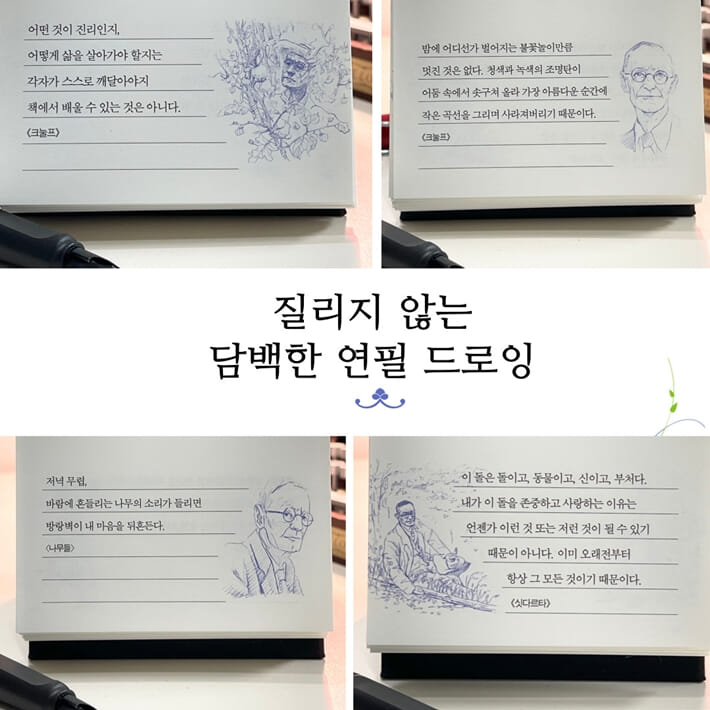 어떤 것이 진리인지,
어떻게 삶을 살아가야 할지는
각자가 스스로 깨달아야지
책에서 배울 수 있는 것은 아니다.
《크눌프》
밤에 어디선가 벌어지는 불꽃놀이만큼
멋진 것은 없다. 청색과 녹색의 조명탄이
어둠 속에서 솟구쳐 올라 가장 아름다운 순간에
작은 곡선을 그리며 사라져버리기 때문이다.
《크눌프》
질리지 않는
담백한 연필 드로잉
저녁 무렵,
바람에 흔들리는 나무의 소리가 들리면
방랑벽이 내 마음을 뒤흔든다.
〈나무들〉
이 돌은 돌이고, 동물이고, 신이고, 부처다.
내가 이 돌을 존중하고 사랑하는 이유는
언젠가 이런 것 또는 저런 것이 될 수 있기
때문이 아니다. 이미 오래전부터
항상 그 모든 것이기 때문이다.
《싯다르타》